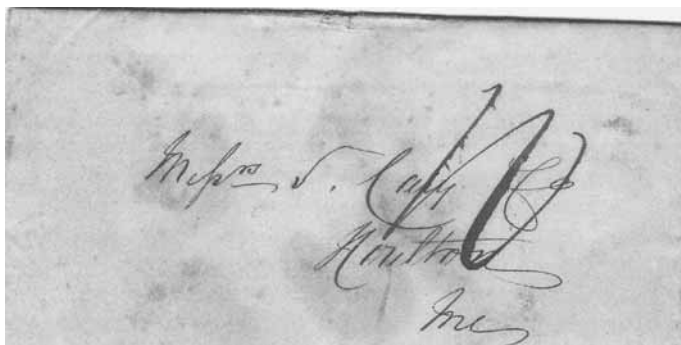 Messrs S. Cary & Co
Houlton
Me
10